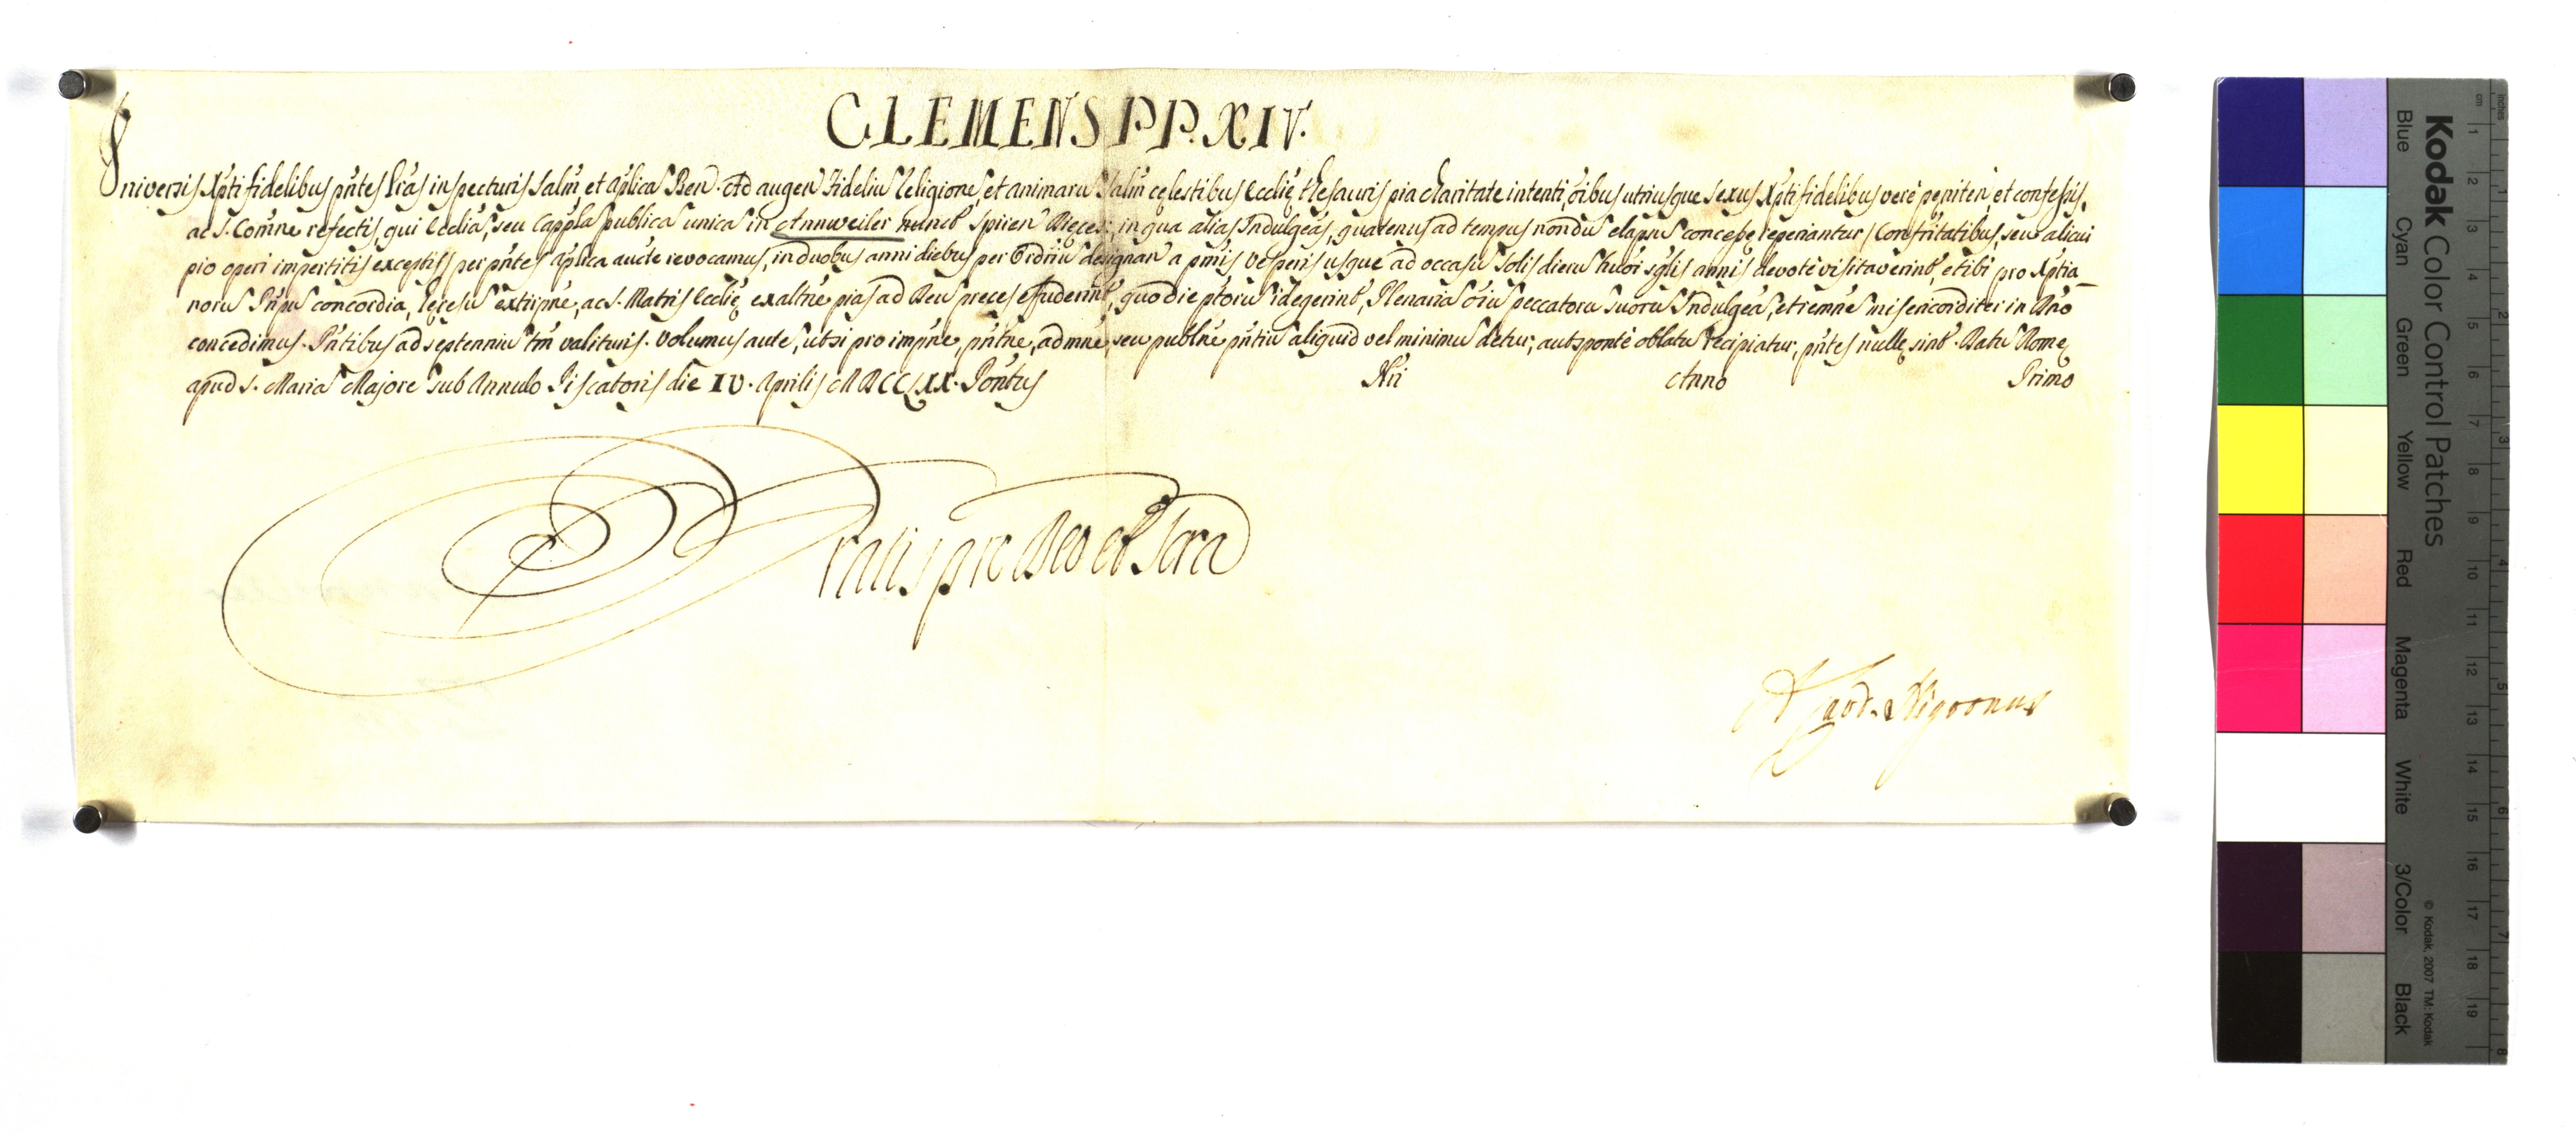 CLEMENS PP. XIV.
Universis Xpti fidelibus pñtes lr̃as inspecturis salm̃ et ap̃lica Ben. Ad augen fideliu Religione, et animaru salm̃ cęlestibus Ecclię thesauris pia charitate intenti, oĩbus utriusque sexus Xpti fidelibus verè pęniten, et confessis,
ac S. Comñne refectis, qui Ecclia, seu Cappla publica unica in Annweiler nuncũ Spiren Dięces:, in qua alias Indulgeãs, quatenus ad tempus nondu elapsu concessę reperiantur (Confr̃itatibus, seu alicui
pio operi impertitis exceptis) per pñtes ap̃lica aucte revocamus, in duobus anni diebus per Ordriu designan a pm̃is vesperis usque ad occasu solis dieru hm̃oi sglis annis devotè visitaverint, et ibi pro Xptia-
noru Pr̃ipu concordia, hęresu extirpñe, ac S. Matris Ecclię exaltñe pias ad Deu preces effuderint, quo die ptoru id egerint, Plenaria oĩu peccatoru suoru Indulgea, et remñe misericorditer in Dño
concedimus. Pñtibus ad septenniu tm̃ valituris. Volumus aute, ut si pro impñe, pñtñe, admñe, seu publñe pñtiu aliquid vel minimu detur, aut sponte oblatu recipiatur, pñtes nullę sint. Datu Romę
apud S. Maria Majore sub Annulo Piscatoris die IV. Aprilis MDCCLXX. Pontus Nri Anno Primo
Gratis pro Deo et Scra
A. Card. Nigronus
Kodak Color Control Patches
Blue Cyan Green Yellow Red Magenta White 3/Color Black
© Kodak, 2007 TM: Kodak
cm 1 2 3 4 5 6 7 8 9 10 11 12 13 14 15 16 17 18 19
inches 1 2 3 4 5 6 7 8